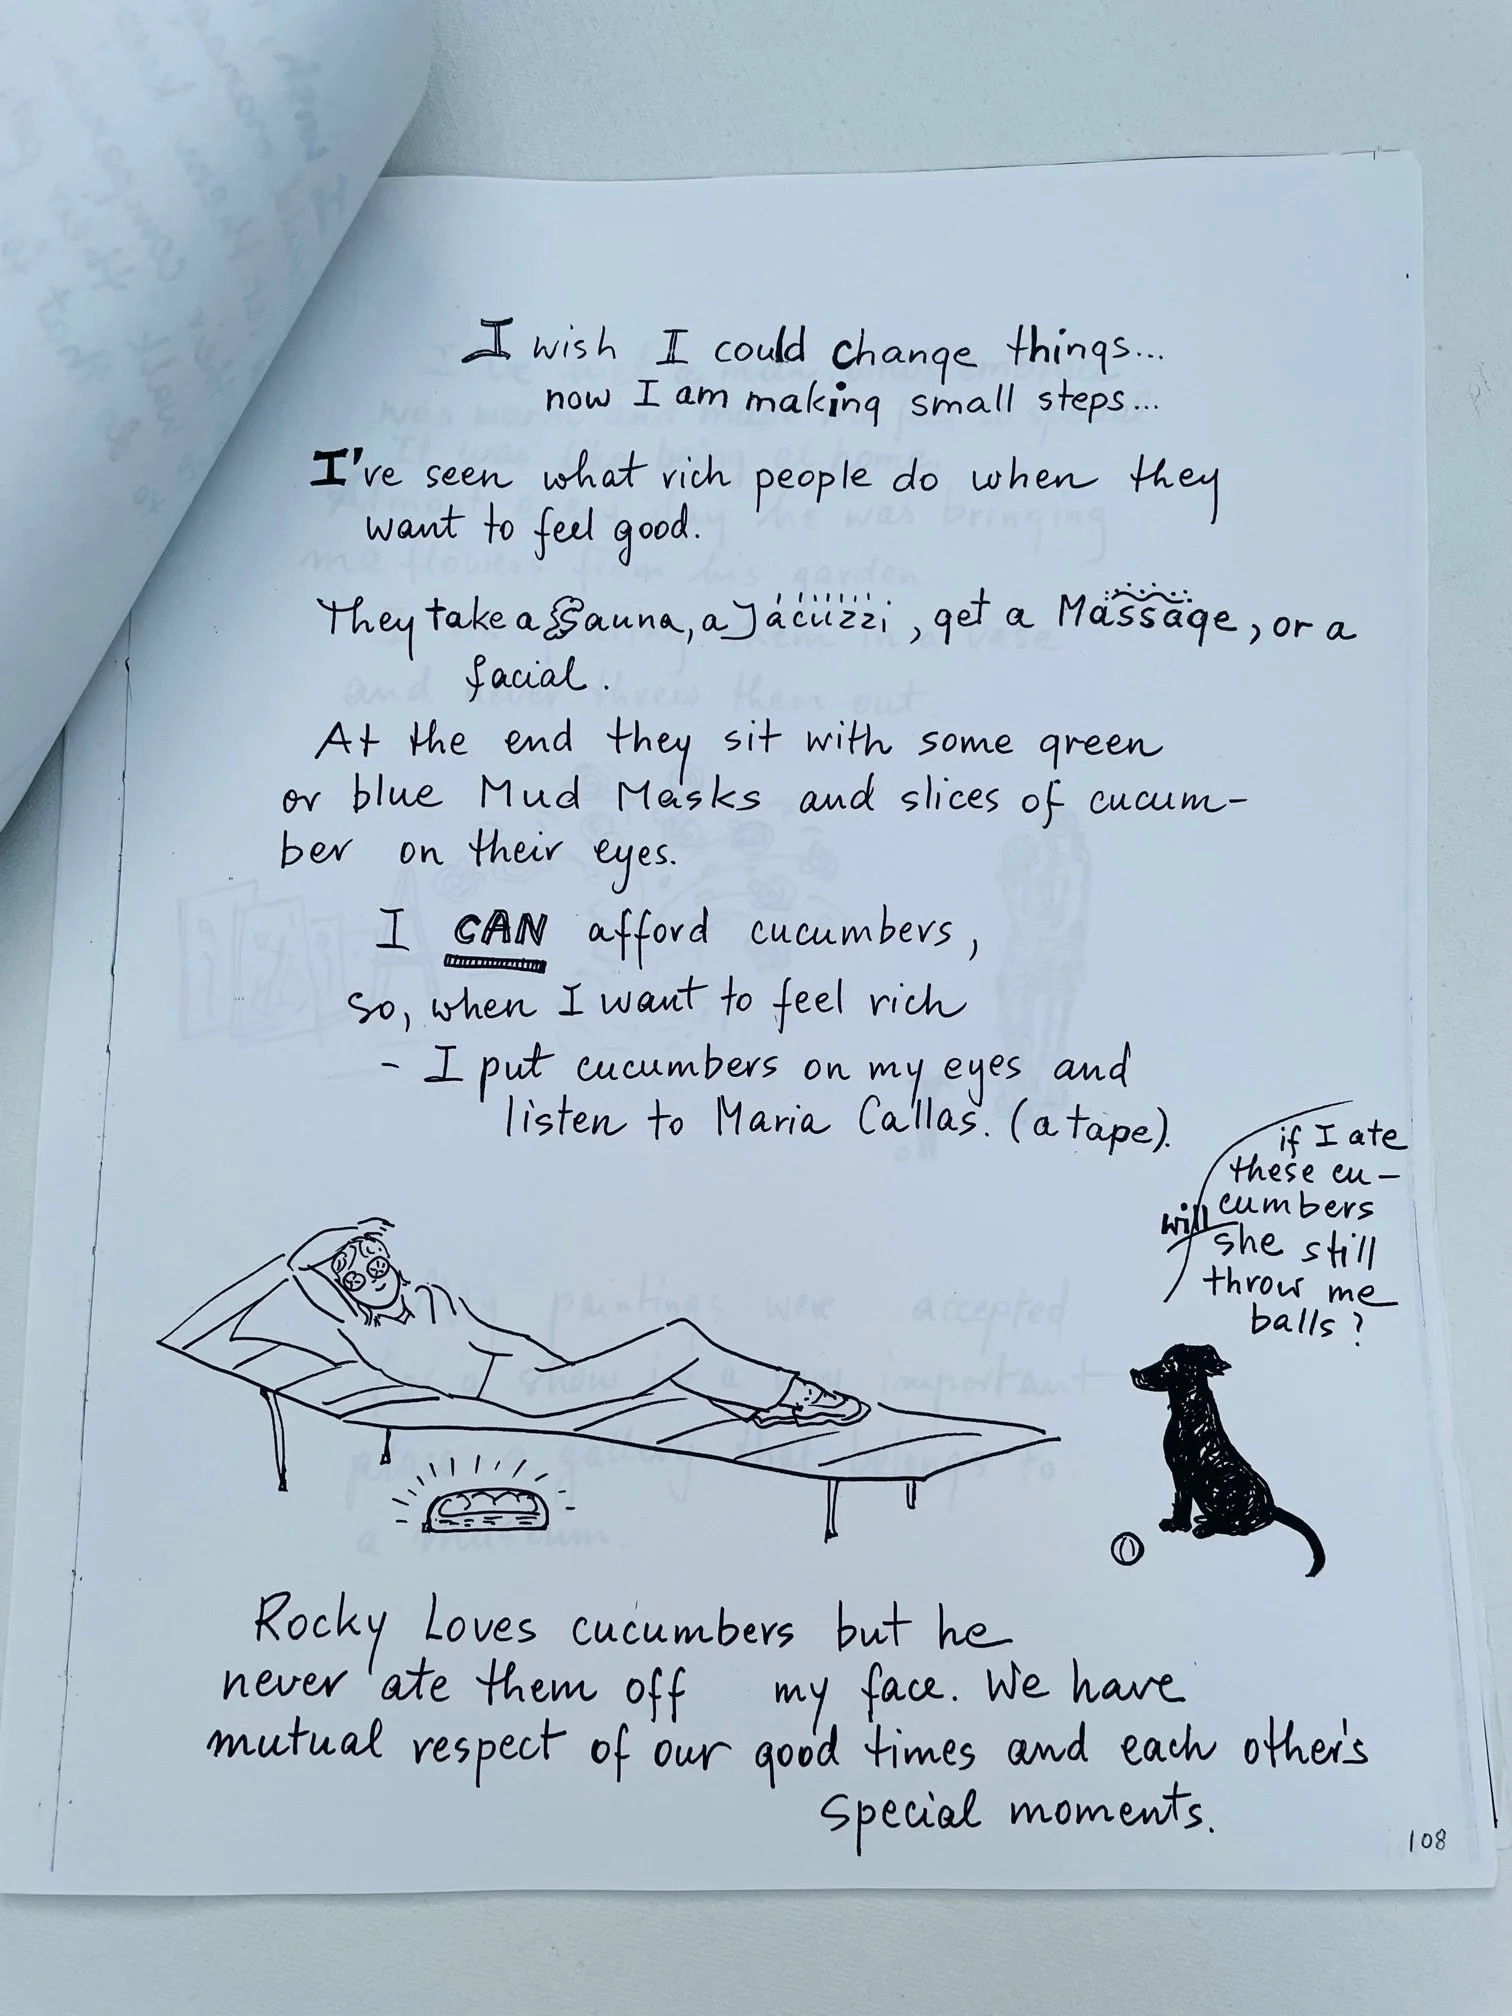 I wish I could change things...
now I am making small steps...
I've seen what rich people do when they
want to feel good.
They take a Sauna, a Jacuzzi, get a Massage, or a
facial.
At the end they sit with some green
or blue Mud Masks and slices of cucum-
ber on their eyes.
I CAN afford cucumbers,
so, when I want to feel rich
- I put cucumbers on my eyes and
listen to Maria Callas. (a tape).
if I ate
these cu-
cumbers
will she still
throw me
balls?
Rocky Loves cucumbers but he
never ate them off my face. We have
mutual respect of our good times and each other's
special moments.
108